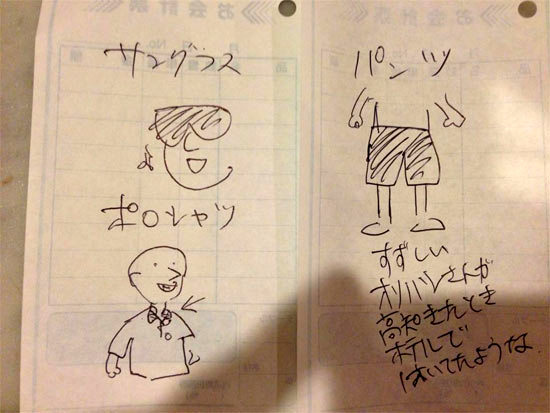 サングラス
ポロシャツ
パンツ
すずしい
オリバーさんが
高知きたとき
ホテルで
はいてたような